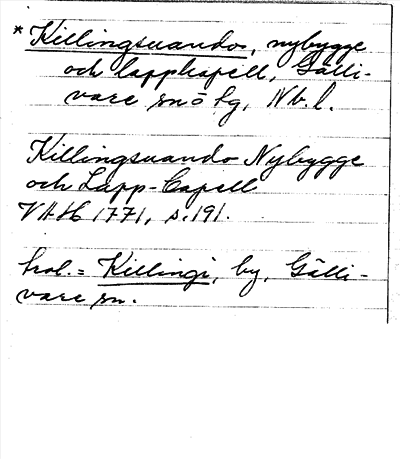 * Killingsuando, nybygge
och lappkapell, Gälli-
vare sn o hg, Nb. l.
Killingsuando Nybygge
och Lapp-Capell
VAH 1771, s. 191.
trol. = Killingi, by, Gälli-
vare sn.